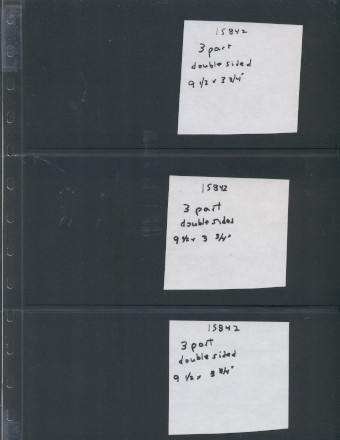 15842
3 part
double sided
9 1/2 x 3 3/4"
15842
3 part
double sided
9 1/2 x 3 3/4"
15842
3 part
double sided
9 1/2 x 3 3/4"